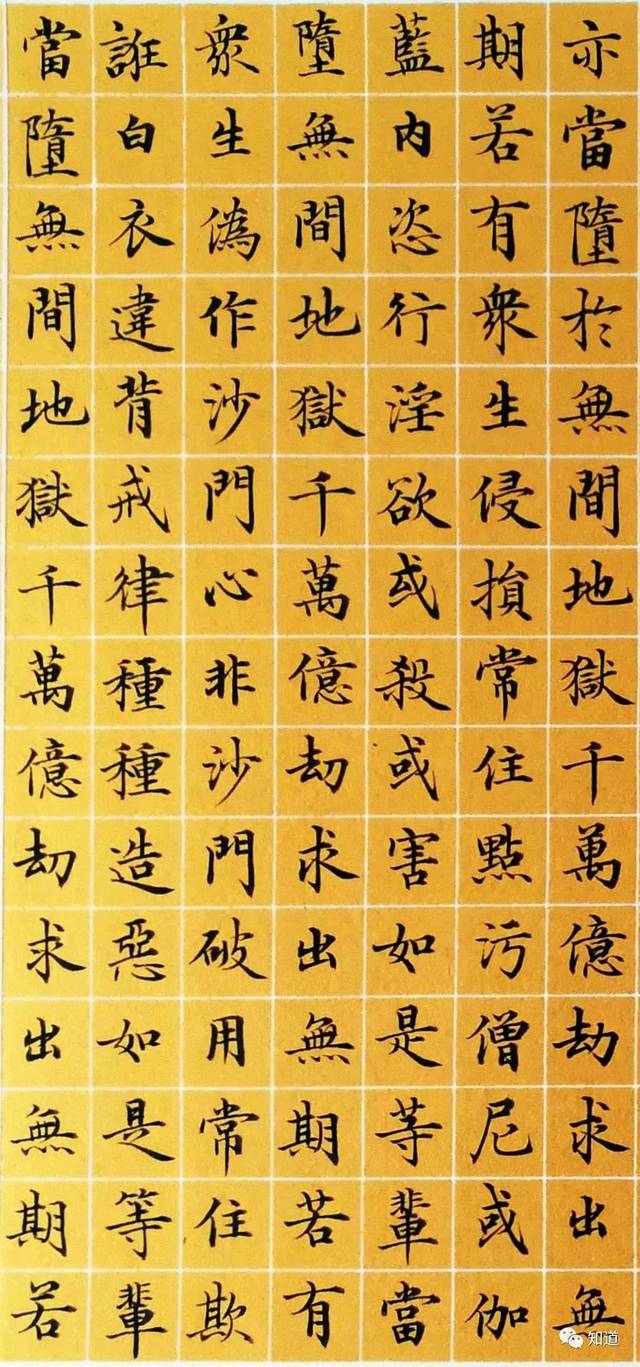 亦當墮於無間地獄千萬億劫求出無
期若有眾生侵損常住點污僧尼或伽
藍內恣行淫欲或殺或害如是等輩當
墮無間地獄千萬億劫求出無期若有
眾生偽作沙門心非沙門破用常住欺
誑白衣違背戒律種種造惡如是等輩
當墮無間地獄千萬億劫求出無期若
知道